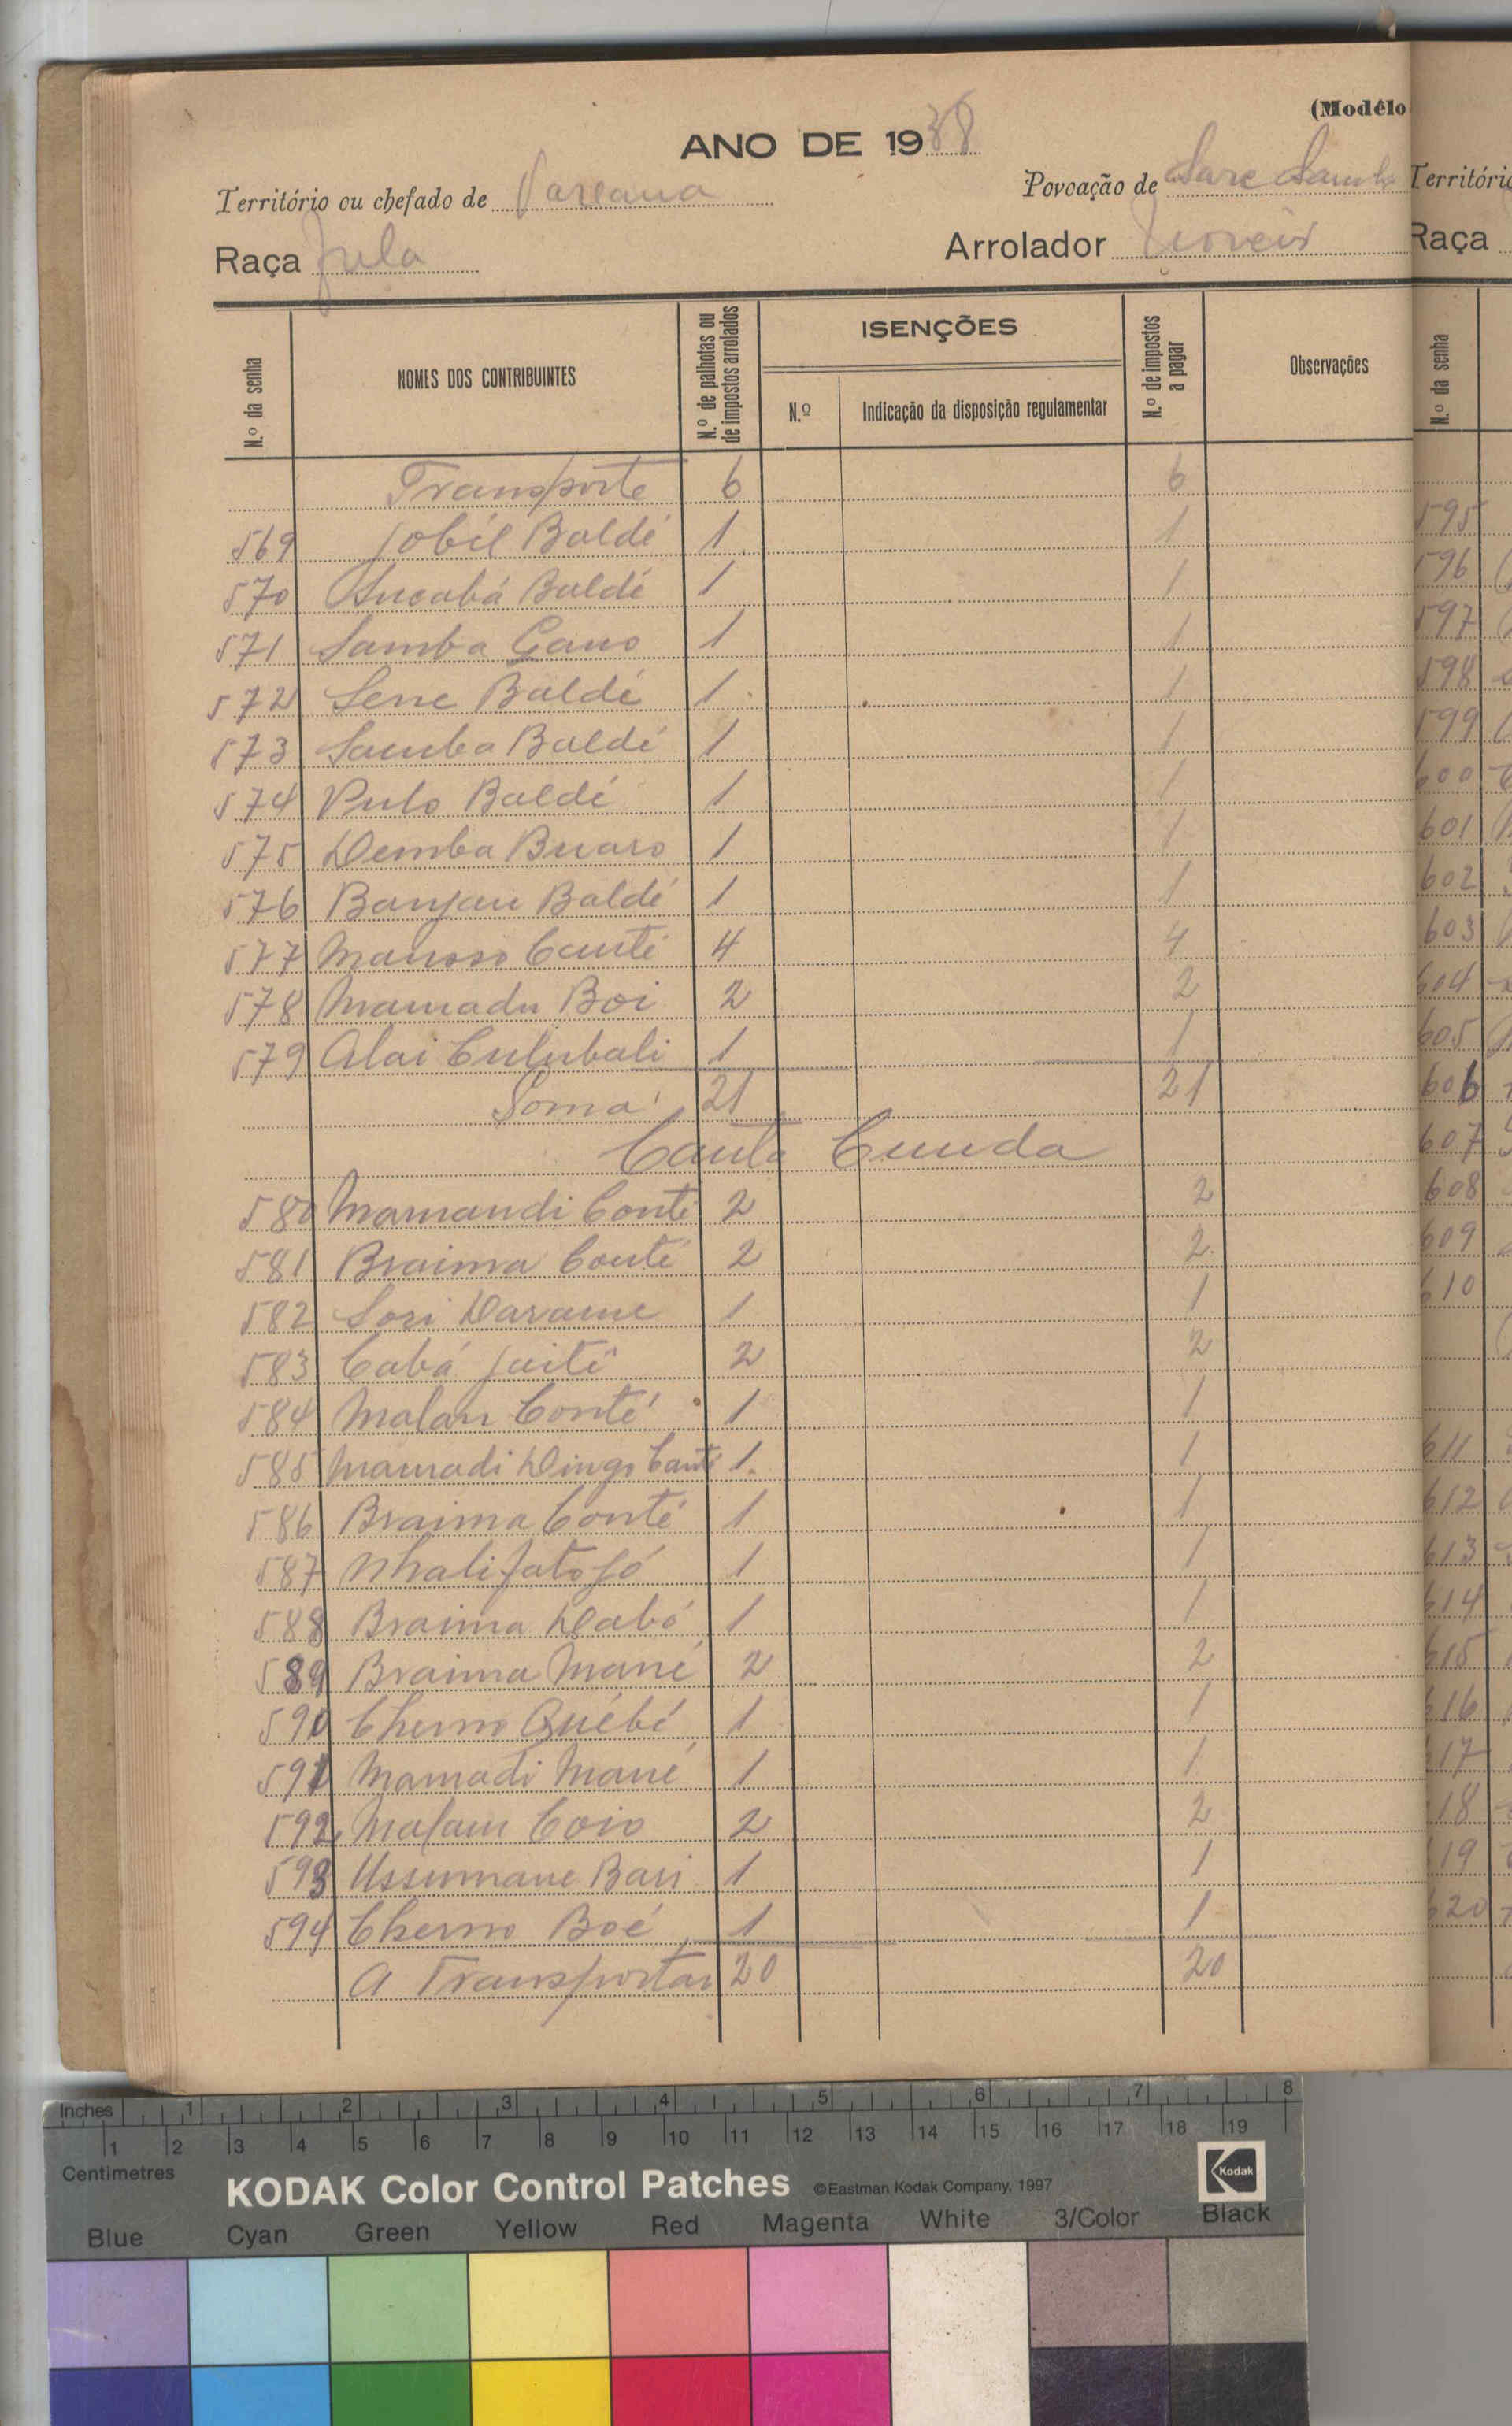 (Modêlo
ANO DE 1938
Território ou chefado de
Povoação de Sare Samba
Raça Fula
Arrolador
N.º da senha
NOMES DOS CONTRIBUINTES
N.º de palhotas ou de impostos arrolados
ISENÇÕES
N.º
Indicação da disposição regulamentar
N.º de impostos a pagar
Observações
Transporte 6 6
569 Jobél Baldé 1 1
570 Sucabá Baldé 1 1
571 Samba Gano 1 1
572 Sene Baldé 1 1
573 Samba Baldé 1 1
574 Pulo Baldé 1 1
575 Demba Buaro 1 1
576 Banjau Baldé 1 1
577 Canté 4 4
578 Mamadu Boi 2 2
579 Alai Culubali 1 1
Soma 21 21
Canta Cunda
580 Mamandi Conté 2 2
581 Braima Conté 2 2
582 Sori Darame 1 1
583 Cabá Jaité 2 2
584 Malan Conté 1 1
585 Mamadi Dingo Canté 1 1
586 Braima Conté 1 1
587 Nhalifatofó 1 1
588 Braima Dabó 1 1
589 Braima Mané 2 2
590 Cherno Québé 1 1
591 Mamadi Mané 1 1
592 Malam Coio 2 2
593 Ussumane Bari 1 1
594 Cherno Boé 1 1
A Transportar 20 20
Território
Raça
N.º da senha
595
596
597
598
599
600
601
602
603
604
605
606
607
608
609
610
611
612
613
614
615
616
617
618
619
620
Inches 1 2 3 4 5 6 7 8
1 2 3 4 5 6 7 8 9 10 11 12 13 14 15 16 17 18 19
Centimetres
KODAK Color Control Patches ©Eastman Kodak Company, 1997 Kodak
Blue Cyan Green Yellow Red Magenta White 3/Color Black